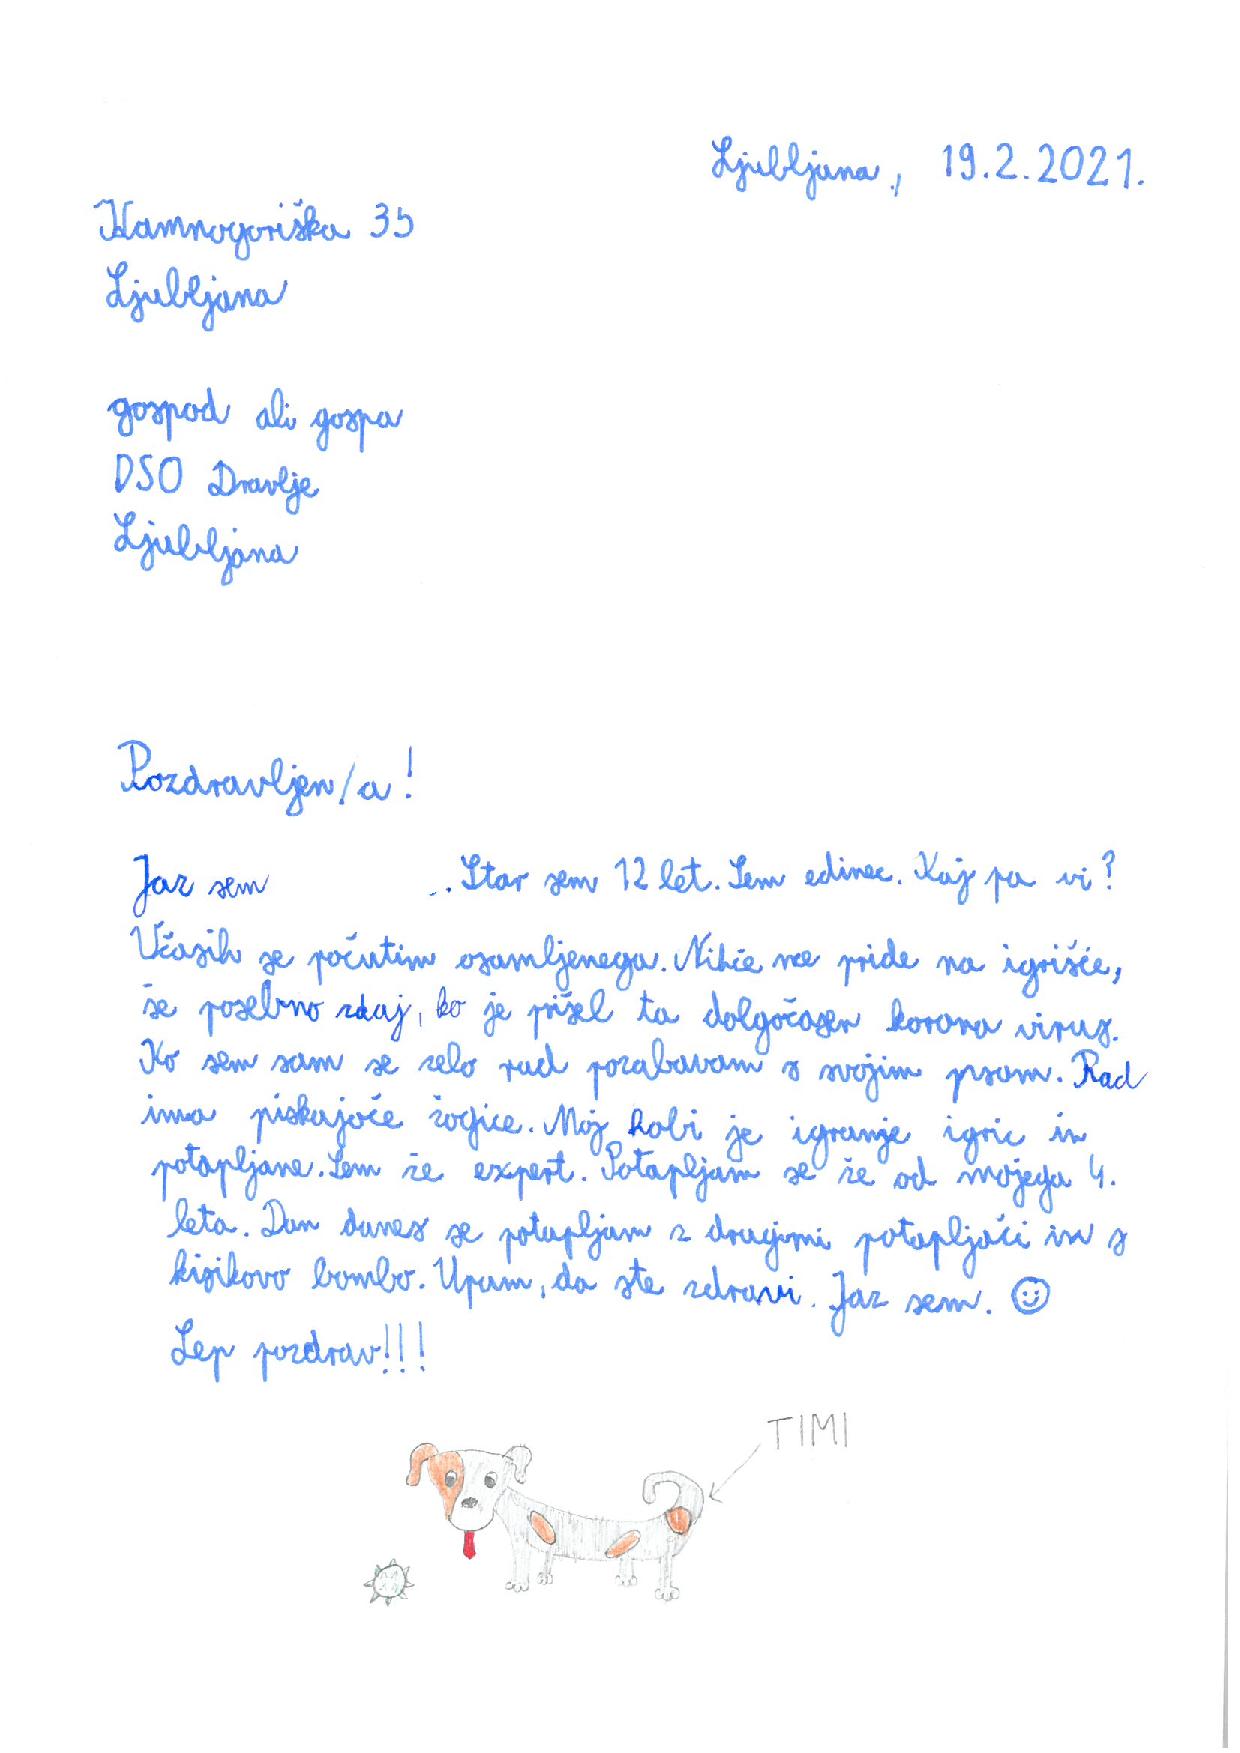 Ljubljana, 19.2.2021.
Kamnogoriška 35
Ljubljana
gospod ali gospa
DSO Dravlje
Ljubljana
Pozdravljen/a!
Jaz sem . Star sem 12 let. Sem edinec. Kaj pa vi?
Včasih se počutim osamljenega. Nihče ne pride na igrišče,
še posebno zdaj, ko je prišel ta dolgočasen korona virus.
Ko sem sam se zelo rad pozabavam s svojim psom. Rad
ima piskajoče žogice. Moj hobi je igranje igric in
potapljane. Sem že expert. Potapljam se že od mojega 4.
leta. Dan danes se potapljam z drugimi potapljači in s
kisikovo bombo. Upam, da ste zdravi. Jaz sem. ☺
Lep pozdrav!!!
TIMI